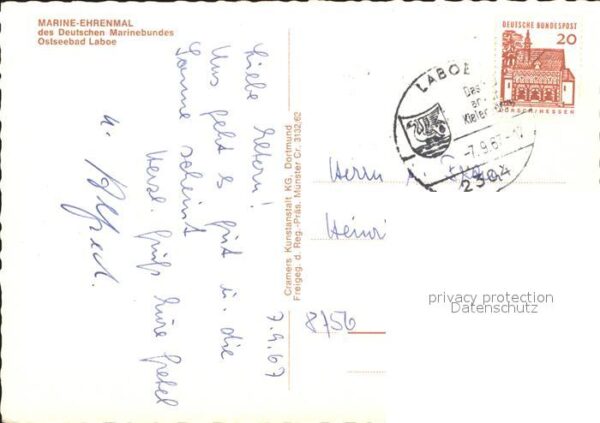 MARINE-EHRENMAL
des Deutschen Marinebundes
Ostseebad Laboe
7.9.67
Liebe Eltern!
Uns geht es gut u. die
Sonne scheint
Herzl. Grüße Eure Gretel
u. Alfred.
Cramers Kunstanstalt KG, Dortmund
Freigeg. d. Reg.-Präs. Münster Cr. 3132/62
DEUTSCHE BUNDESPOST
20
LORSCH/HESSEN
LABOE
Das
an
Kieler
-7.9.67-17
2304
Herrn
Heinri
8756
privacy protection
Datenschutz